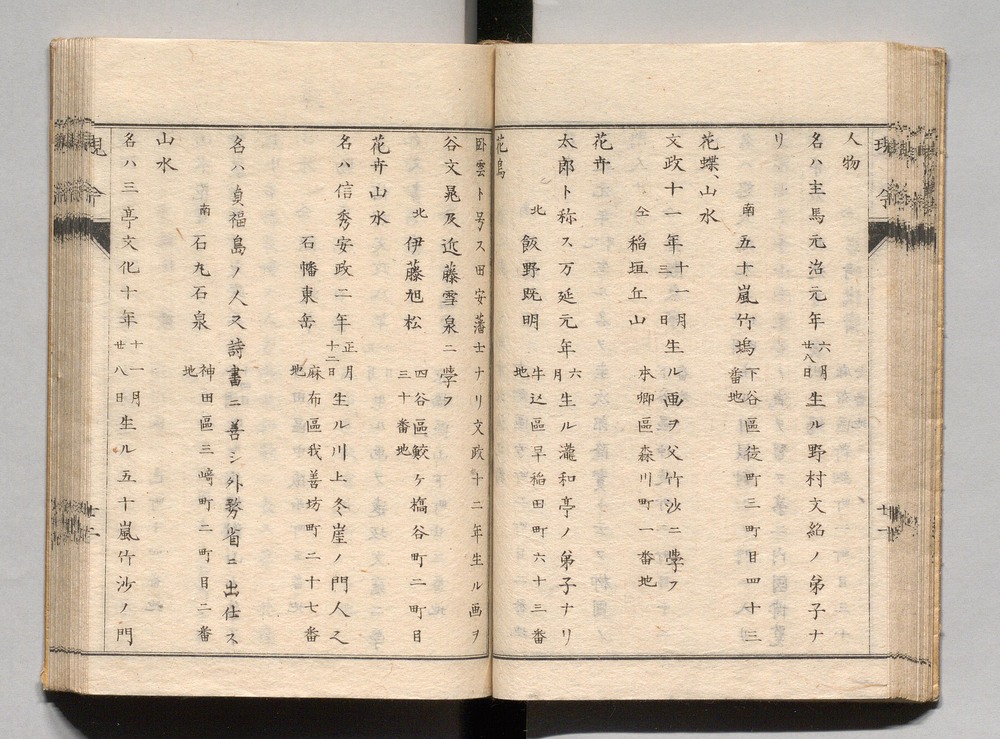 現今
人物
名ハ主馬元治元年六月廿八日生ル野村文紹ノ弟子ナ
リ
南 五十嵐竹塢 下谷區徒町三町目四十三番地
花蝶、山水
文政十一年十一月三日生ル画ヲ父竹沙ニ學フ
仝 稲垣丘山 本郷區森川町一番地
花卉
太郎ト称ス万延元年六月生ル瀧和亭ノ弟子ナリ
北 飯野既明 牛込區早稲田町六十三番地
花鳥
臥雲ト号ス田安藩士ナリ文政十二年生ル画ヲ
谷文晁及近藤雪泉ニ學フ
北 伊藤旭松 四谷區鮫ヶ橋谷町二町目三十番地
花卉山水
名ハ信秀安政二年正月十二日生ル川上冬崖ノ門人又
石幡東岳 麻布區我善坊町二十七番地
名ハ貞福島ノ人又詩書ニ善シ外務省ニ出仕ス
南 石丸石泉 神田區三崎町二町目二番地
山水
名ハ三亭文化十年十一月廿八日生ル五十嵐竹沙ノ門
現今